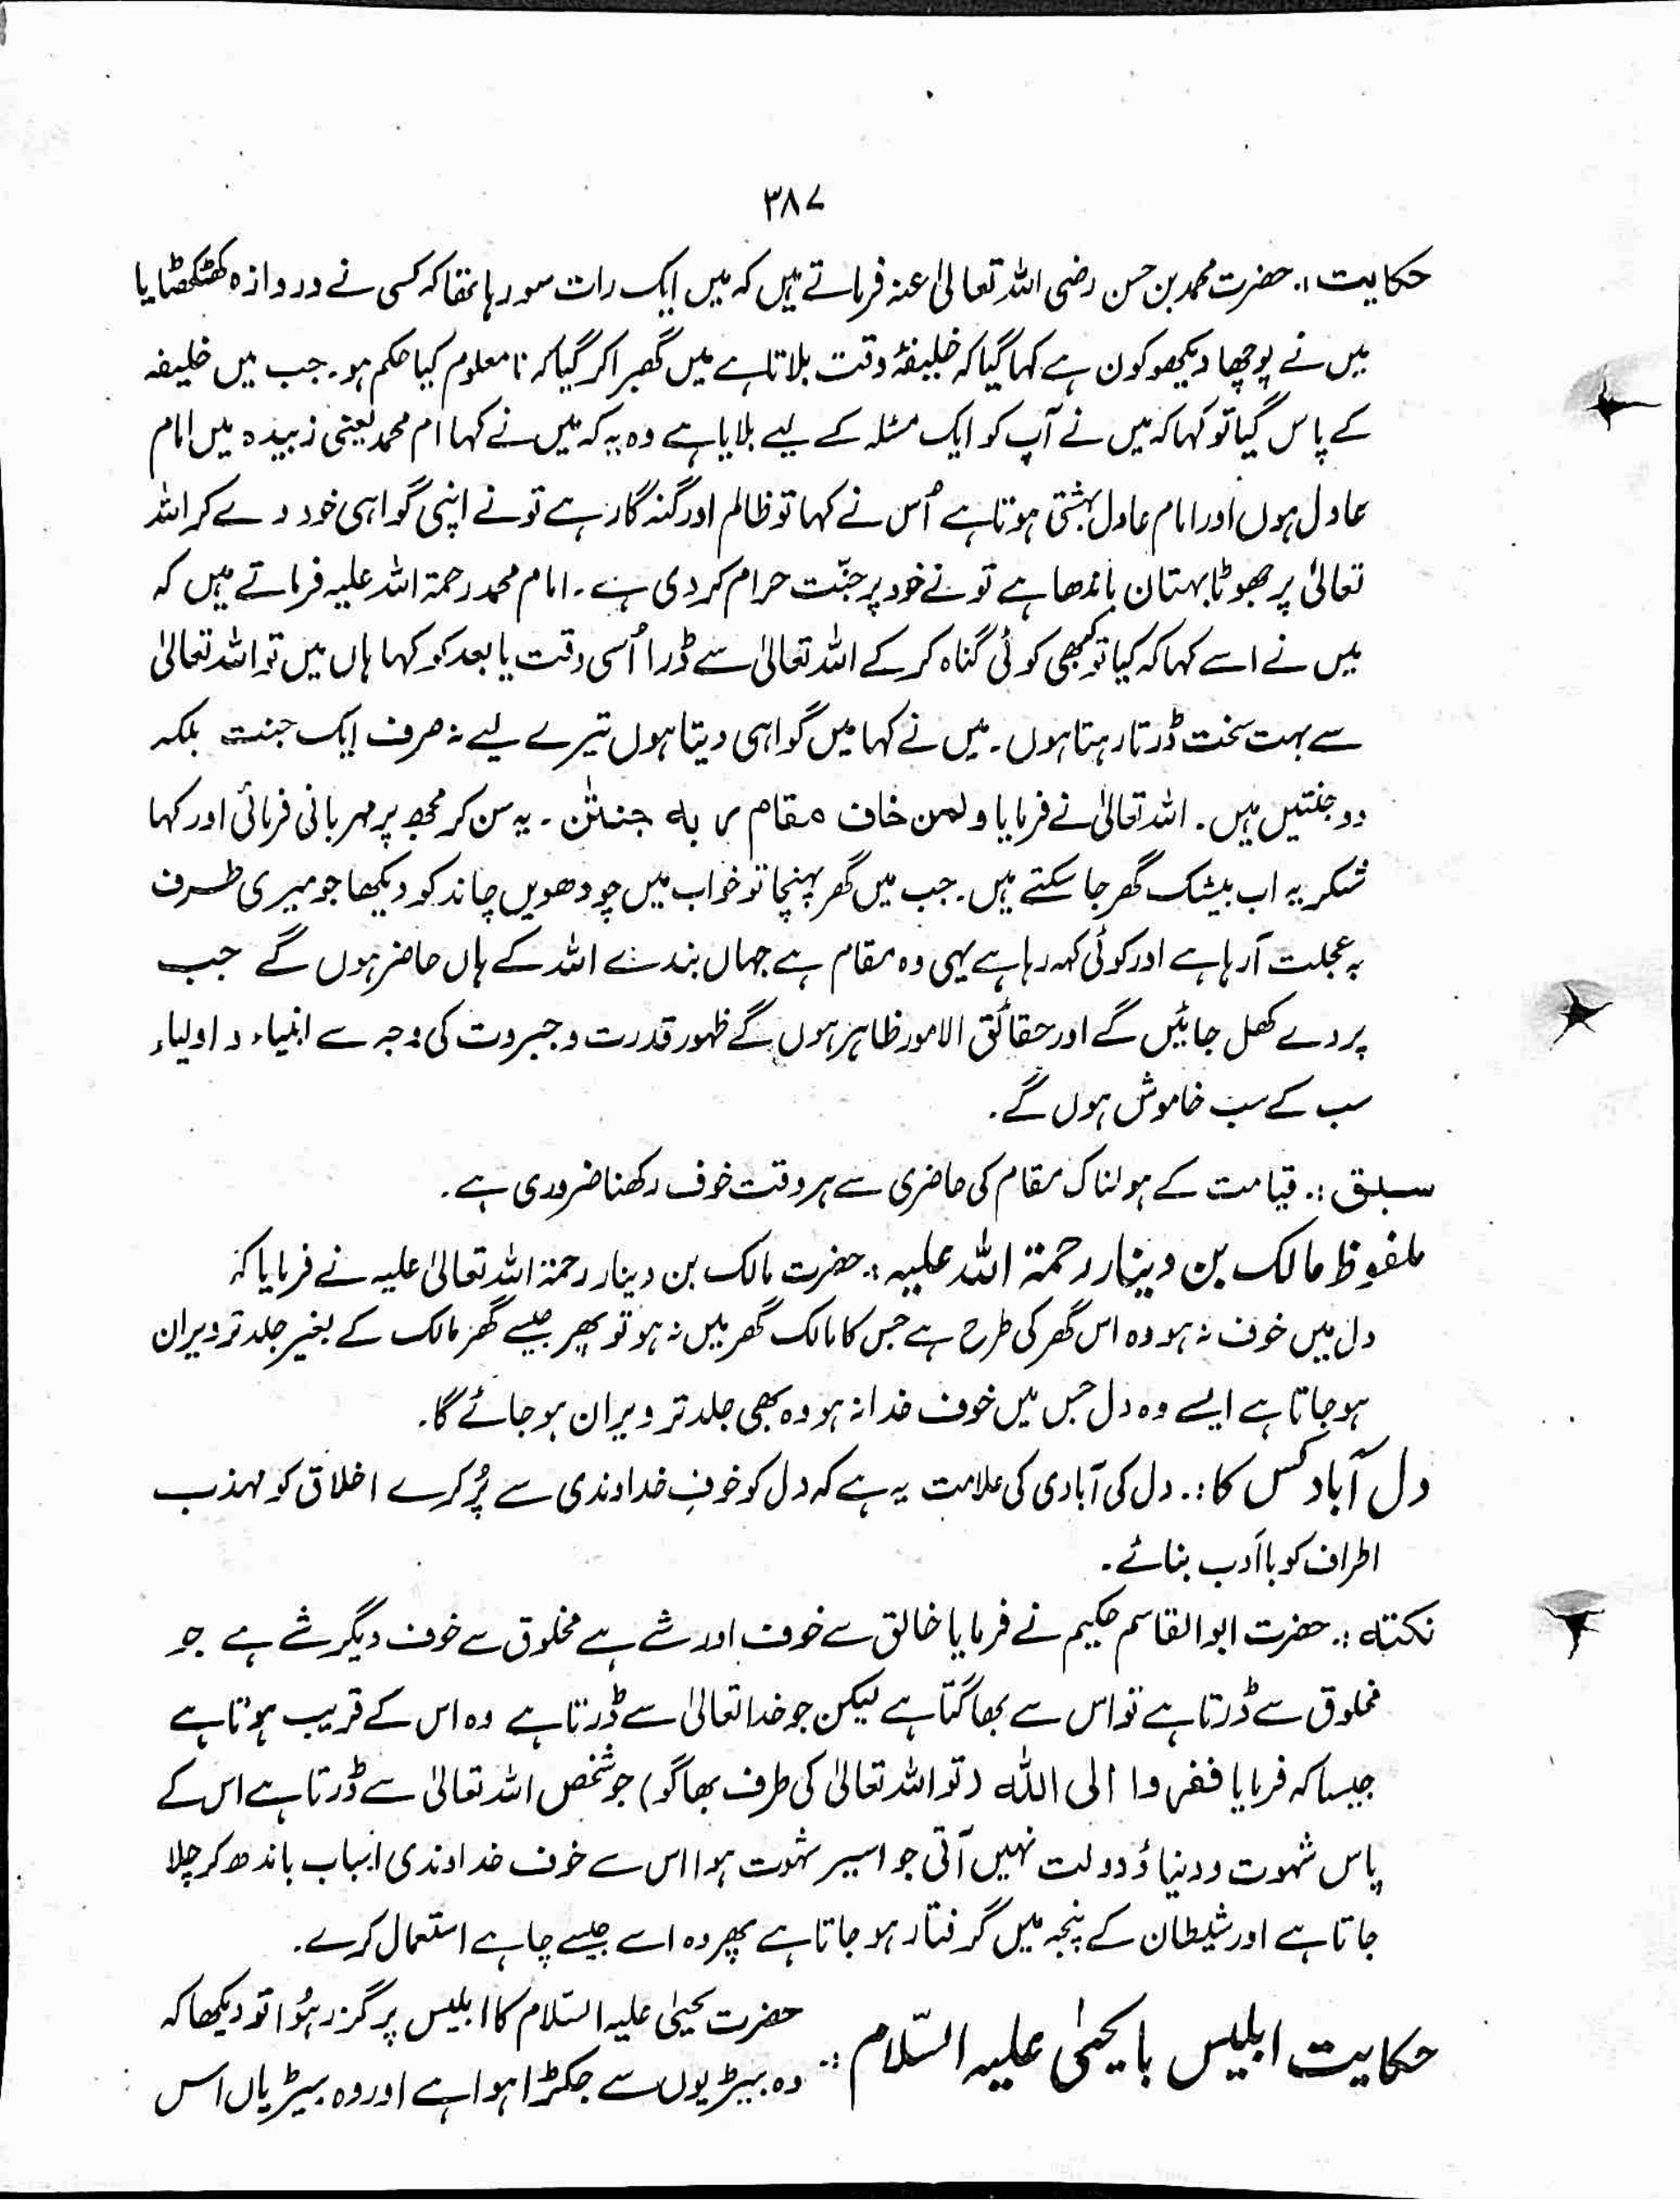 ۳۸۷
حکایت :۔ حضرت محمد بن حسن رضی اللہ تعالیٰ عنہ فرماتے ہیں کہ میں ایک رات سو رہا تھا کہ کسی نے دروازہ کھٹکھٹایا
میں نے پوچھا دیکھو کون ہے کہا گیا کہ خلیفۂ وقت بلاتا ہے میں گھبرا کر گیا کہ نا معلوم کیا حکم ہو۔ جب میں خلیفہ
کے پاس گیا تو کہا کہ میں نے آپ کو ایک مسئلہ کے لیے بلایا ہے وہ یہ کہ میں نے کہا ام محمد یعنی زبیدہ میں امام
عادل ہوں اور امام عادل بہشتی ہوتا ہے اُس نے کہا تو ظالم اور گنہ گار ہے تو نے اپنی گواہی خود دے کر اللہ
تعالیٰ پر جھوٹا بہتان باندھا ہے تو نے خود پر جنّت حرام کر دی ہے۔ امام محمد رحمۃ اللہ علیہ فرماتے ہیں کہ
میں نے اسے کہا کہ کیا تو کبھی کوئی گناہ کر کے اللہ تعالیٰ سے ڈرا اُسی وقت یا بعد کو کہا ہاں میں تو اللہ تعالیٰ
سے بہت سخت ڈرتا رہتا ہوں۔ میں نے کہا میں گواہی دیتا ہوں تیرے لیے نہ صرف ایک جنت بلکہ
دو جنتیں ہیں۔ اللہ تعالیٰ نے فرمایا ولمن خاف مقام ربه جنتٰن ۔ یہ سن کر مجھ پر مہربانی فرمائی اور کہا
شکریہ اب بیشک گھر جا سکتے ہیں۔ جب میں گھر پہنچا تو خواب میں چودھویں چاند کو دیکھا جو میری طرف
بہ عجلت آ رہا ہے اور کوئی کہہ رہا ہے یہی وہ مقام ہے جہاں بندے اللہ کے ہاں حاضر ہوں گے جب
پردے کھل جائیں گے اور حقائق الامور ظاہر ہوں گے ظہور قدرت و جبروت کی وجہ سے انبیاء و اولیاء
سب کے سب خاموش ہوں گے۔
سبق :۔ قیامت کے ہولناک مقام کی حاضری سے ہر وقت خوف رکھنا ضروری ہے۔
ملفوظ مالک بن دینار رحمۃ اللہ علیہ :۔ حضرت مالک بن دینار رحمۃ اللہ تعالیٰ علیہ نے فرمایا کہ
دل میں خوف نہ ہو وہ اس گھر کی طرح ہے جس کا مالک گھر میں نہ ہو تو پھر جیسے گھر مالک کے بغیر جلد تر ویران
ہو جاتا ہے ایسے وہ دل جس میں خوف خدا نہ ہو وہ بھی جلد تر ویران ہو جائے گا۔
دل آباد کس کا :۔ دل کی آبادی کی علامت یہ ہے کہ دل کو خوفِ خداوندی سے پُر کرے اخلاق کو مہذب
اطراف کو باادب بنائے۔
نکتہ :۔ حضرت ابوالقاسم حکیم نے فرمایا خالق سے خوف اور شے ہے مخلوق سے خوف دیگر شے ہے جو
مخلوق سے ڈرتا ہے تو اس سے بھاگتا ہے لیکن جو خدا تعالیٰ سے ڈرتا ہے وہ اس کے قریب ہوتا ہے
جیسا کہ فرمایا ففروا الی اللہ (تو اللہ تعالیٰ کی طرف بھاگو) جو شخص اللہ تعالیٰ سے ڈرتا ہے اس کے
پاس شہوت و دنیا و دولت نہیں آتی جو اسیر شہوت ہوا اس سے خوف خداوندی اسباب باندھ کر چلا
جاتا ہے اور شیطان کے پنجہ میں گرفتار ہو جاتا ہے پھر وہ اسے جیسے چاہے استعمال کرے۔
حکایت ابلیس با یحییٰ علیہ السّلام :۔ حضرت یحییٰ علیہ السّلام کا ابلیس پر گزر ہُوا تو دیکھا کہ
وہ بیڑیوں سے جکڑا ہوا ہے اور وہ بیڑیاں اس